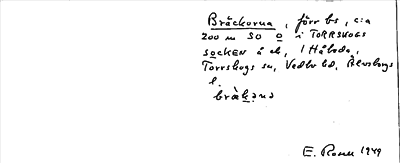 Bräckorna, förr bs, c:a
200 m SO o i TORRSKOGS
SOCKEN å ek, 1 Håbola,
Torrskogs sn, Vedbo hd, Älvsborgs
l.
E. Rosen 1949